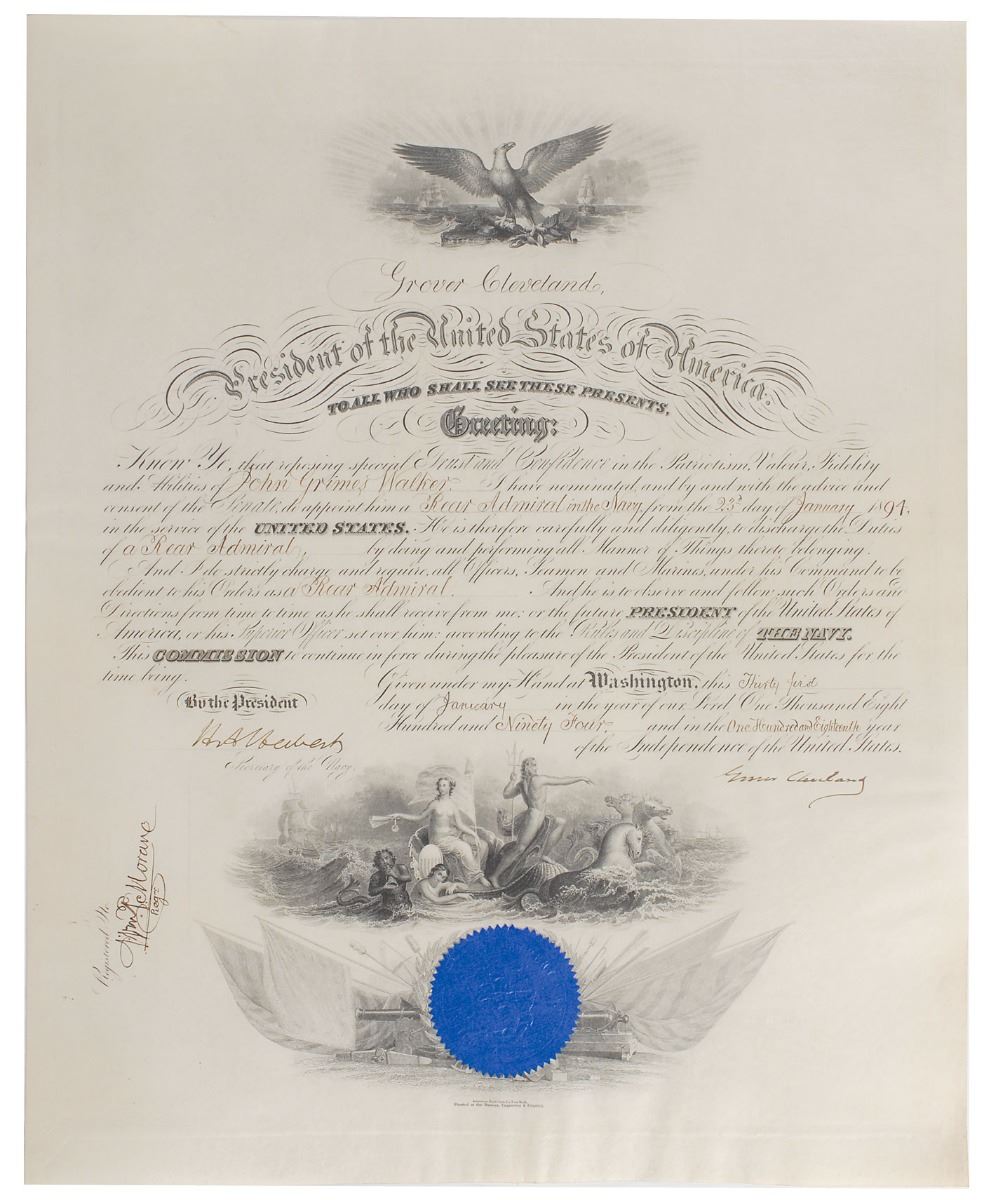 Grover Cleveland,
President of the United States of America.
TO ALL WHO SHALL SEE THESE PRESENTS,
Greeting:
Know Ye, that reposing special Trust and Confidence in the Patriotism, Valour, Fidelity
and Abilities of John Grimes Walker I have nominated and by and with the advice and
consent of the Senate, do appoint him a Rear Admiral in the Navy from the 23d day of January 1894.
in the service of the UNITED STATES. He is therefore carefully and diligently to discharge the Duties
of a Rear Admiral, by doing and performing all Manner of Things thereto belonging.
And I do strictly charge and require, all Officers, Seamen and Marines, under his Command to be
obedient to his Orders as a Rear Admiral. And he is to observe and follow, such Orders and
Directions from time to time as he shall receive from me, or the future PRESIDENT of the United States of
America, or his Superior Officer set over him, according to the Rules and Discipline of THE NAVY.
This COMMISSION to continue in force during the pleasure of the President of the United States for the
time being.
Given under my Hand at Washington, this Thirty first
day of January in the year of our Lord One Thousand Eight
Hundred and Ninety Four and in the One Hundred and Eighteenth year
of the Independence of the United States.
By the President
Grover Cleveland
H A Herbert
Secretary of the Navy.
Registered No.